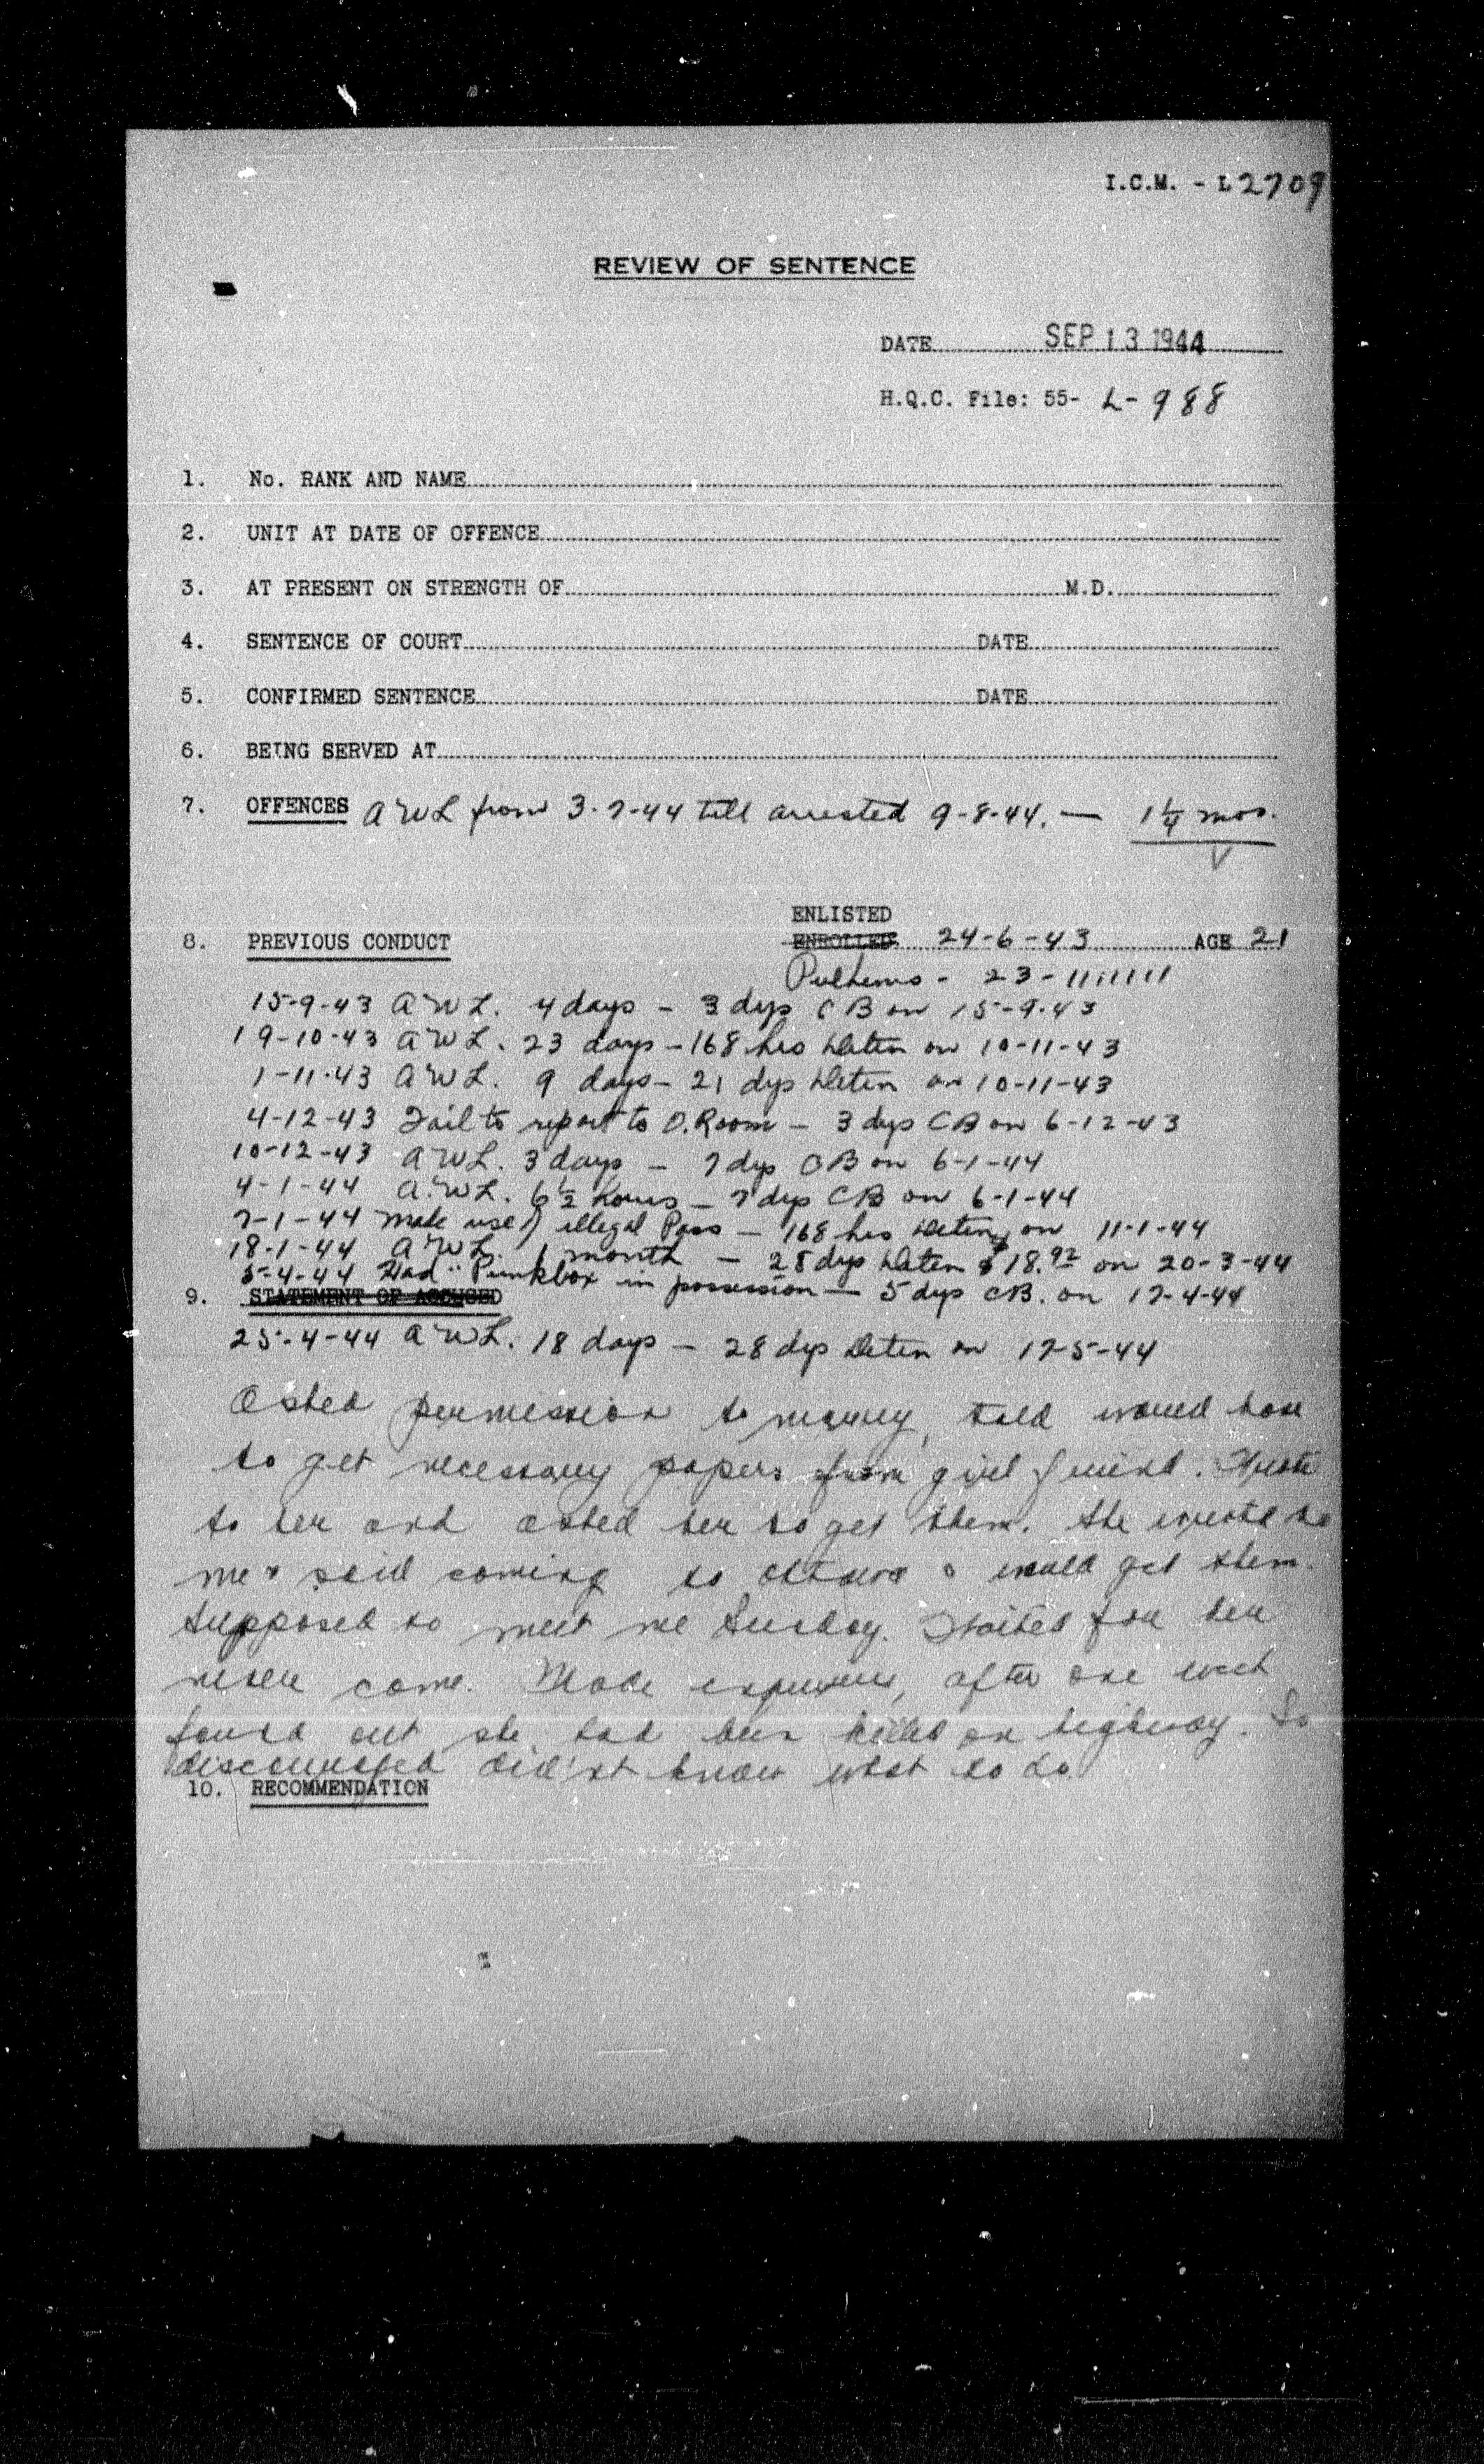 I.C.M. - L2709
REVIEW OF SENTENCE
DATE SEP 13 1944
H.Q.C. File: 55- L-988
1. No. RANK AND NAME
2. UNIT AT DATE OF OFFENCE
3. AT PRESENT ON STRENGTH OF M.D.
4. SENTENCE OF COURT DATE
5. CONFIRMED SENTENCE DATE
6. BEING SERVED AT
7. OFFENCES AWL from 3-7-44 till arrested 9-8-44. — 1¼ mos.
ENLISTED
8. PREVIOUS CONDUCT ENROLLED 24-6-43 AGE 21
Pulhems - 23-1111111
15-9-43 AWL. 4 days - 3 dys CB on 15-9-43
19-10-43 AWL. 23 days - 168 hrs Deten on 10-11-43
1-11-43 AWL. 9 days - 21 dys Deten on 10-11-43
4-12-43 Fail to report to O. Room - 3 dys CB on 6-12-43
10-12-43 AWL. 3 days - 7 dys CB on 6-1-44
4-1-44 A.W.L. 6½ hours - 7 dys CB on 6-1-44
7-1-44 Make use of illegal Pass - 168 hrs Deten on 11-1-44
18-1-44 AWL. 1 month - 28 dys Deten $18.92 on 20-3-44
5-4-44 Had "Punkbox in possession - 5 dys CB. on 17-4-44
9. STATEMENT OF ACCUSED
25-4-44 AWL. 18 days - 28 dys Deten on 17-5-44
Asked permission to marry, told would have
to get necessary papers from girl friend. Wrote
to her and asked her to get them. She wrote to
me & said coming to Ottawa & would get them.
Supposed to meet me Sunday. Waited for her
never come. Made enquiries, after one week
found out she had been killed on highway. So
discouraged did'nt know what to do.
10. RECOMMENDATION